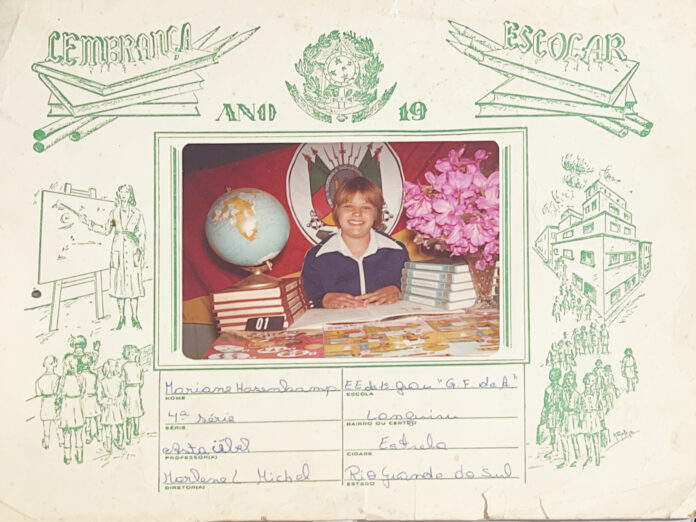 LEMBRANÇA
ESCOLAR
ANO 19
01
Mariane Hasenkamp
NOME
EE de 1º grau "G. F. de A."
ESCOLA
4ª série
SÉRIE
Languiru
BAIRRO OU CENTRO
Anta
PROFESSOR(A)
Estrela
CIDADE
Marlene L. Michel
DIRETOR(A)
Rio Grande do Sul
ESTADO